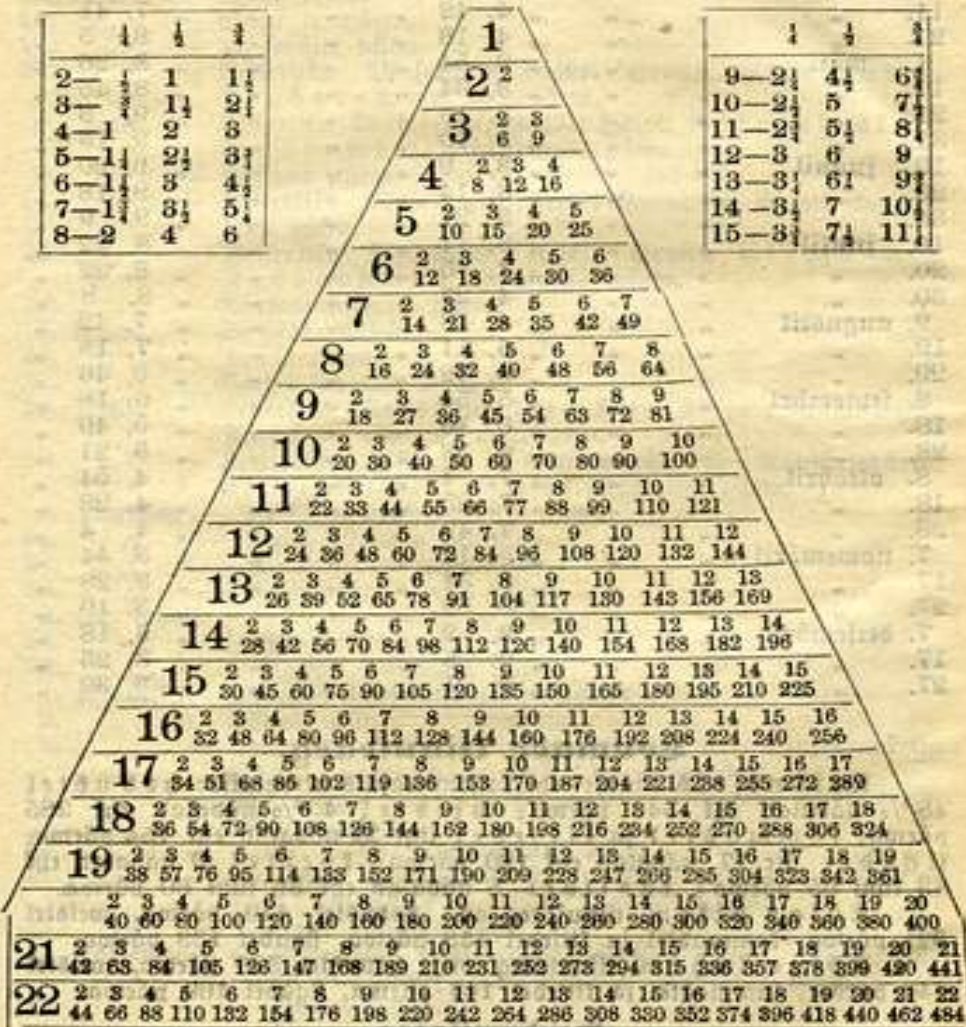 ¼ ½ ¾
2—½ 1 1½
3—¾ 1½ 2¼
4—1 2 3
5—1¼ 2½ 3¾
6—1½ 3 4½
7—1¾ 3½ 5¼
8—2 4 6
¼ ½ ¾
9—2¼ 4½ 6¾
10—2½ 5 7½
11—2¾ 5½ 8¼
12—3 6 9
13—3¼ 6½ 9¾
14—3½ 7 10½
15—3¾ 7½ 11¼
1
2 2
3 2 3
6 9
4 2 3 4
8 12 16
5 2 3 4 5
10 15 20 25
6 2 3 4 5 6
12 18 24 30 36
7 2 3 4 5 6 7
14 21 28 35 42 49
8 2 3 4 5 6 7 8
16 24 32 40 48 56 64
9 2 3 4 5 6 7 8 9
18 27 36 45 54 63 72 81
10 2 3 4 5 6 7 8 9 10
20 30 40 50 60 70 80 90 100
11 2 3 4 5 6 7 8 9 10 11
22 33 44 55 66 77 88 99 110 121
12 2 3 4 5 6 7 8 9 10 11 12
24 36 48 60 72 84 96 108 120 132 144
13 2 3 4 5 6 7 8 9 10 11 12 13
26 39 52 65 78 91 104 117 130 143 156 169
14 2 3 4 5 6 7 8 9 10 11 12 13 14
28 42 56 70 84 98 112 126 140 154 168 182 196
15 2 3 4 5 6 7 8 9 10 11 12 13 14 15
30 45 60 75 90 105 120 135 150 165 180 195 210 225
16 2 3 4 5 6 7 8 9 10 11 12 13 14 15 16
32 48 64 80 96 112 128 144 160 176 192 208 224 240 256
17 2 3 4 5 6 7 8 9 10 11 12 13 14 15 16 17
34 51 68 85 102 119 136 153 170 187 204 221 238 255 272 289
18 2 3 4 5 6 7 8 9 10 11 12 13 14 15 16 17 18
36 54 72 90 108 126 144 162 180 198 216 234 252 270 288 306 324
19 2 3 4 5 6 7 8 9 10 11 12 13 14 15 16 17 18 19
38 57 76 95 114 133 152 171 190 209 228 247 266 285 304 323 342 361
2 3 4 5 6 7 8 9 10 11 12 13 14 15 16 17 18 19 20
40 60 80 100 120 140 160 180 200 220 240 260 280 300 320 340 360 380 400
21 2 3 4 5 6 7 8 9 10 11 12 13 14 15 16 17 18 19 20 21
42 63 84 105 126 147 168 189 210 231 252 273 294 315 336 357 378 399 420 441
22 2 3 4 5 6 7 8 9 10 11 12 13 14 15 16 17 18 19 20 21 22
44 66 88 110 132 154 176 198 220 242 264 286 308 330 352 374 396 418 440 462 484